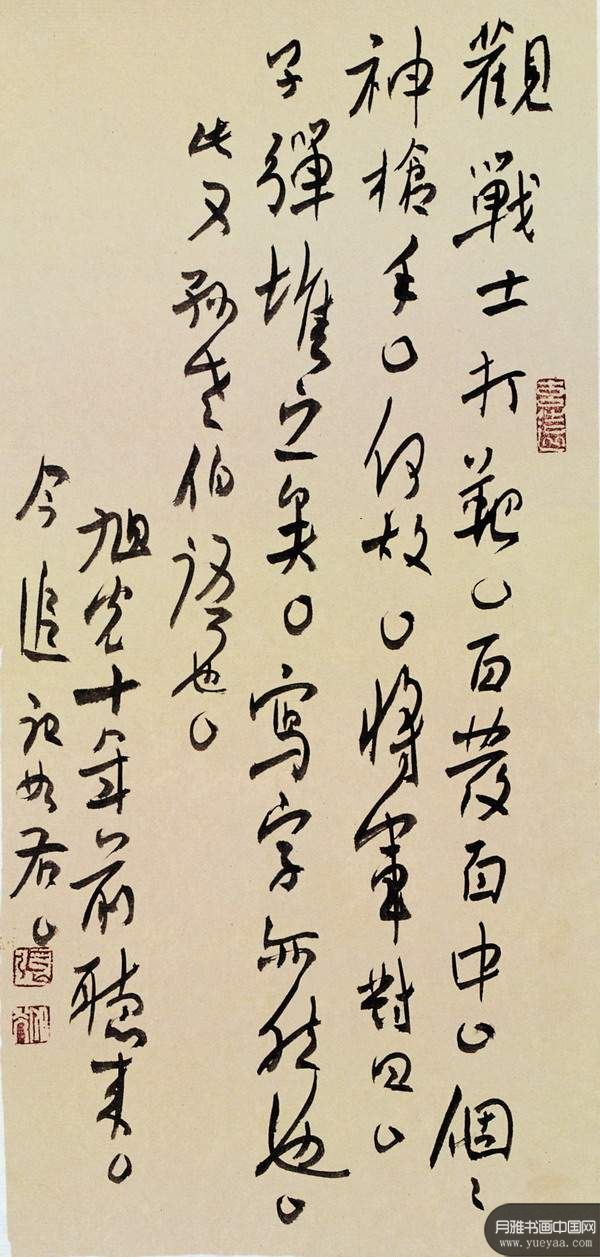 觀戰士打靶。百發百中。個々
神槍手。何故。將軍對曰。
子彈堆之矣。寫字亦然也。
此又孫老伯語也。
旭光十年前聽來。
今追記如右。
月雅书画中国网
www.yueyaa.com